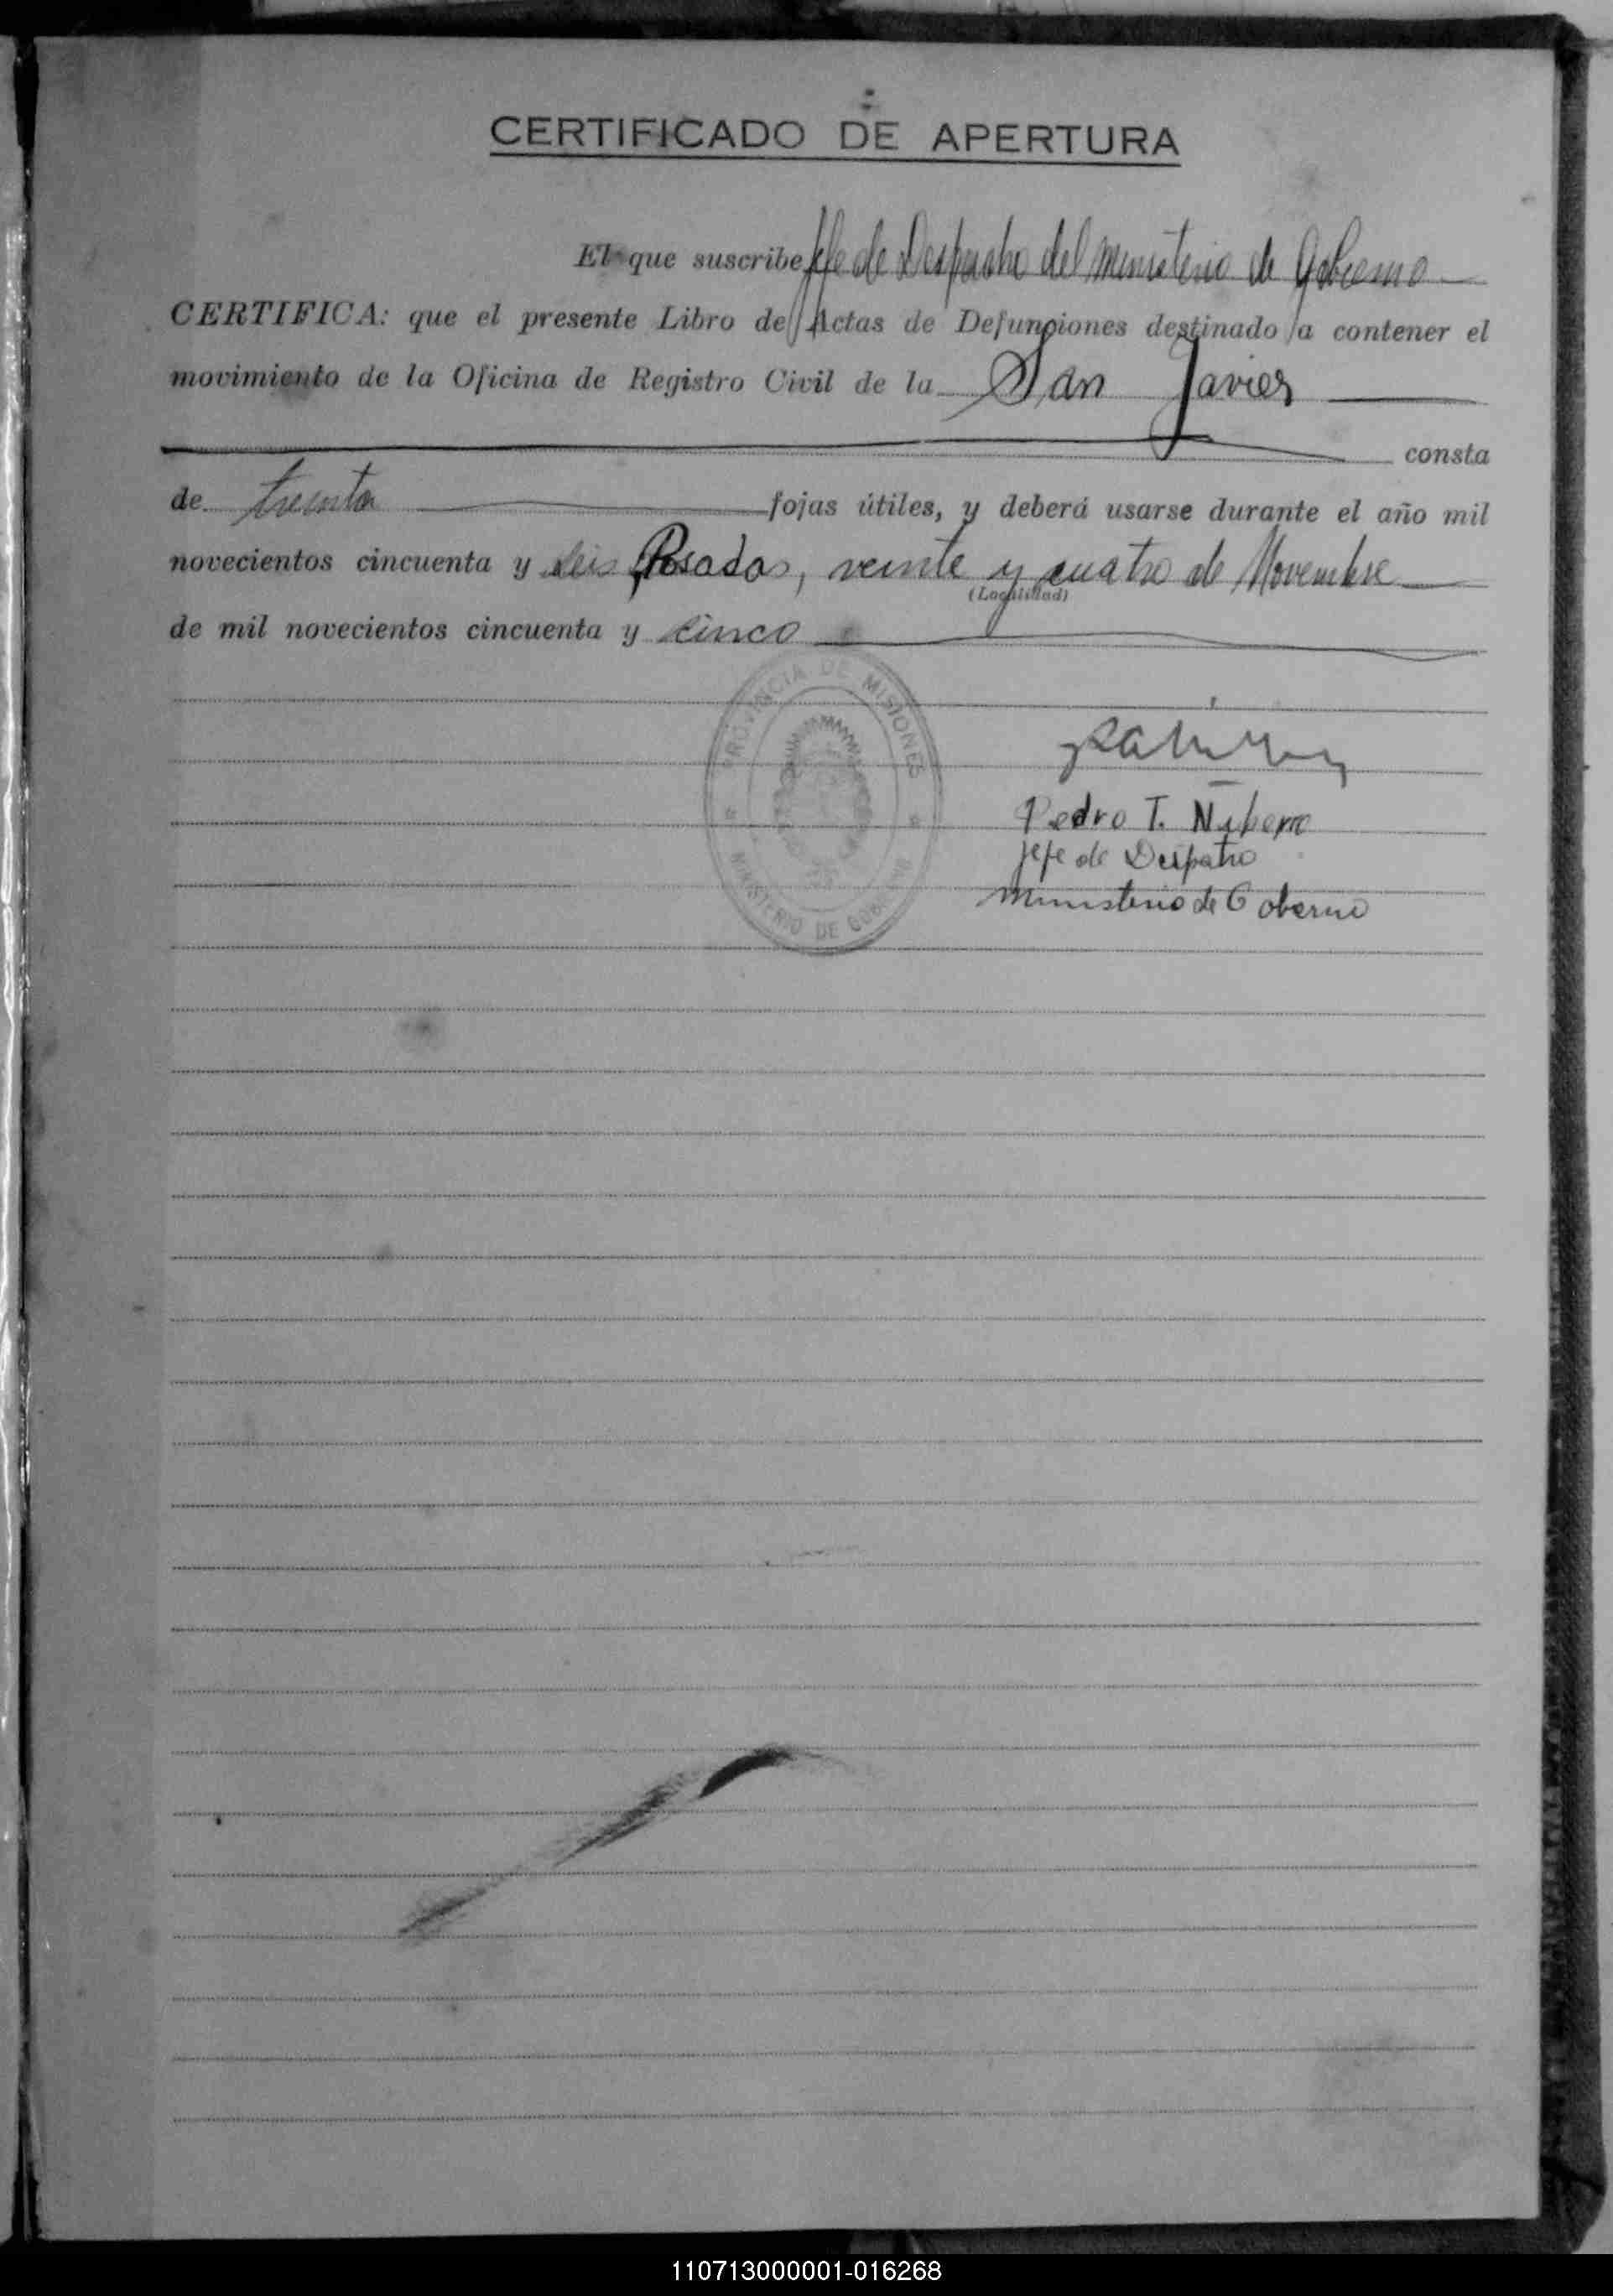 CERTIFICADO DE APERTURA
El que suscribe Jefe de Despacho del Ministerio de Gobierno
CERTIFICA: que el presente Libro de Actas de Defunciones destinado a contener el
movimiento de la Oficina de Registro Civil de la San Javier
consta
de treinta fojas útiles, y deberá usarse durante el año mil
novecientos cincuenta y seis Posadas, veinte y cuatro de Novembre
(Localidad)
de mil novecientos cincuenta y cinco
PROVINCIA DE MISIONES
MINISTERIO DE GOBIERNO
Pedro T.
Jefe de Despacho
Ministerio de Gobierno
110713000001-016268